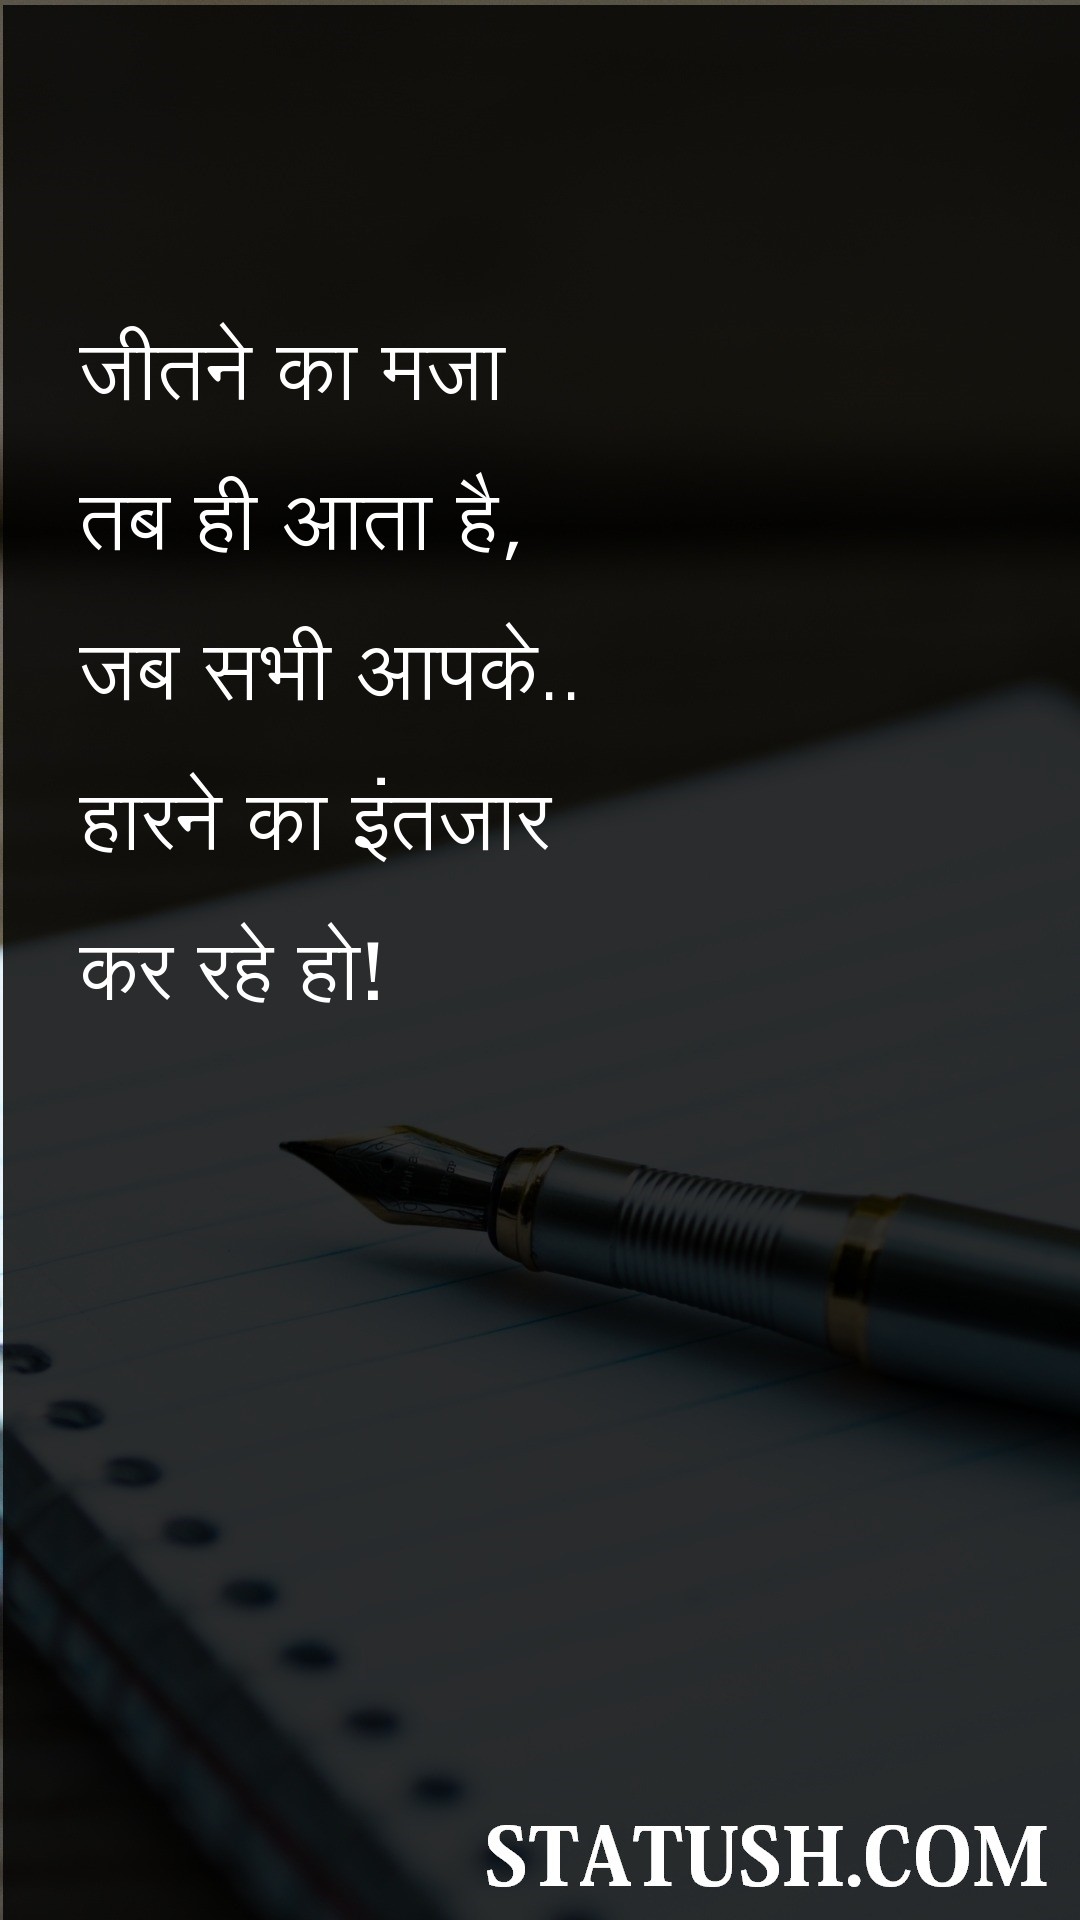 जीतने का मजा
तब ही आता है,
जब सभी आपके..
हारने का इंतजार
कर रहे हो!
STATUSH.COM